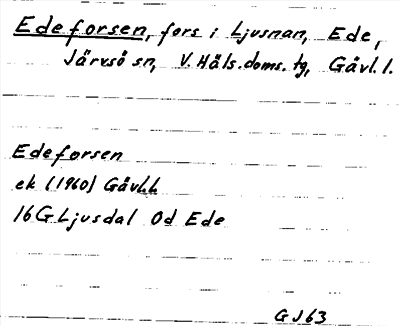 Edeforsen, fors i Ljusnan, Ede,
Järvsö sn, V. Häls. doms. tg, Gävl. l.
Edeforsen
ek (1960) Gävl.l.
16G Ljusdal 0d Ede
GJ63